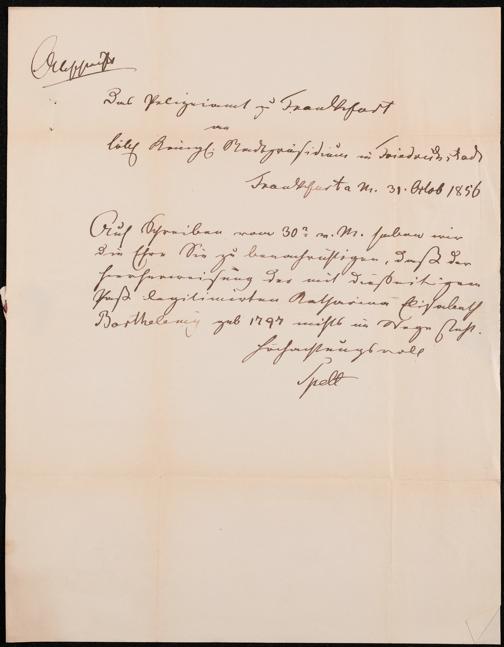 Abschrift
Das Polizeiamt zu Frankfurt
an
löbl Königl. Stadtpräsidium in Friedrichstadt
Frankfurt a M. 31. Octob 1856
Auf Schreiben vom 30n v. M. haben wir
die Ehre Sie zu benachrichtigen, daß der
Hierherweisung der mit dießseitigem
Paß legitimirten Katharina Elisabeth
Barthelemy geb 1797 nichts im Wege steht.
Hochachtungsvoll
Spelt